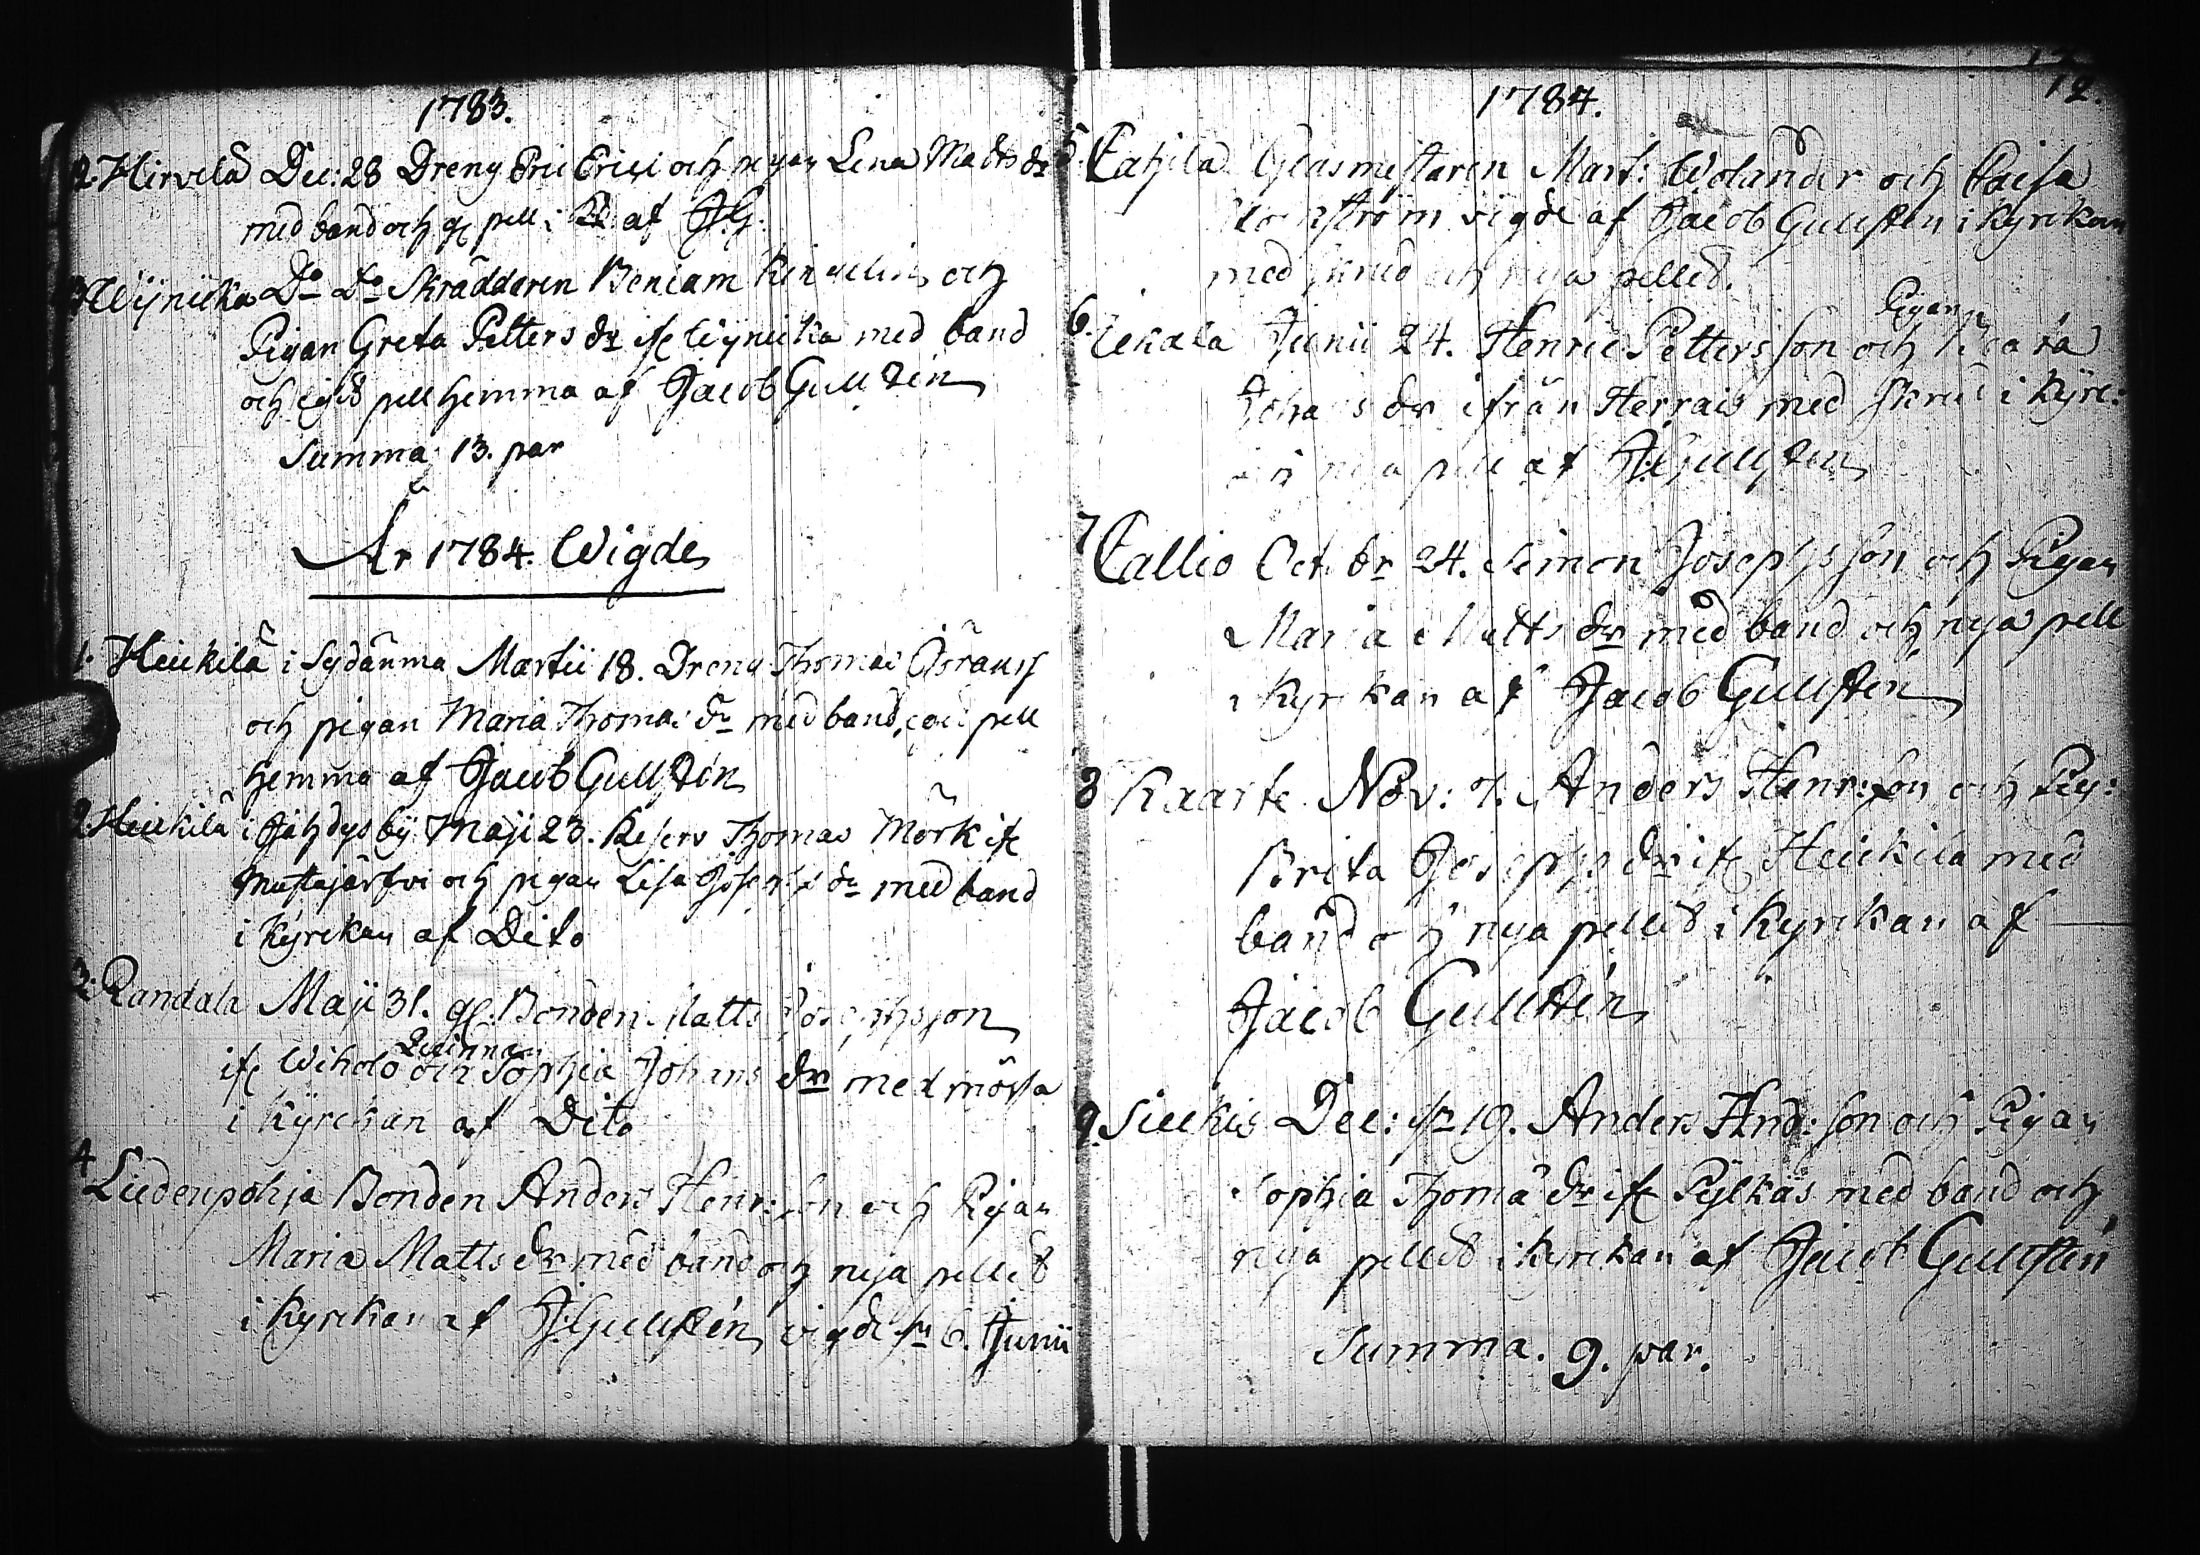 1783.
2. Hirvelä Dec: 28 Dreng Eric Erici och pigan Lena Matts dr
med band och gl pell: af J:G:
Wÿnicka Do Do Skräddaren Beniam och
Pigan Greta Petters dr ifr Wÿnicka med band
och pell hemma af Jacob Gullsten
Summa 13. par
År 1784. Wigde
1. Heickilä i Sydänma Martii 18. Dreng Thomas
och pigan Maria Thomas dr med band, pell
hemma af Jacob Gullsten
2. Heickilä i by Maji 23. Thomas Mörk ifr
Mustajärfvi och pigan Lisa Josephs dr med band
i Kyrckan af Dito
3. Randala Maji 31. gl. Bonden Matts Josephsson
Qvinnan
ifr och Sophia Johans dr med mössa
i Kyrckan af Dito
4 Liedenpohja Bonden Anders Henr: son och Pigan
Maria Matts dr med band och nya pelled
i Kyrckan af J:Gullsten vigde 6. Junii
12.
1784.
5. Glasmestaren Mart: Wolander och Caisa
vigde af Jacob Gullsten i Kyrckan
med skrud och nya pelled.
Pigan
6. Junii 24. Henric Petters son och
Johans dr ifrån Herrais med skrud i Kyrc:
nya pell af J:Gullsten
7 Callio Octobr 24. Simon Josephsson och Pigan
Maria Matts dr med band och nya pell
i Kyrckan af Jacob Gullsten
8 Kaarte Nov: 7. Anders Henr: son och Pig:
Brita Josephs dr ifr Heickilä med
band och nya pelled i Kyrckan af
Jacob Gullsten
9. Dec: 19. Anders And: son och Pigan
Sophia Thoma dr ifr Pÿlkäs med band och
nya pelled i Kyrckan af Jacob Gullsten
Summa. 9. par.